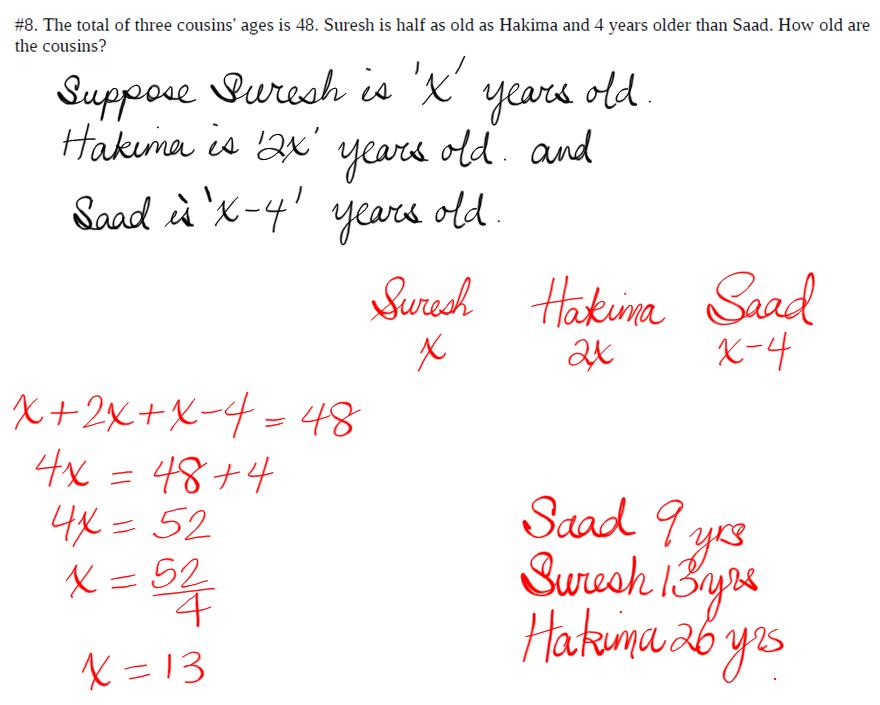 #8. The total of three cousins' ages is 48. Suresh is half as old as Hakima and 4 years older than Saad. How old are
the cousins?
Suppose Suresh is 'x' years old.
Hakima is '2x' years old. and
Saad is 'x-4' years old.
Suresh Hakima Saad
x 2x x-4
x+2x+x-4 = 48
4x = 48+4
4x = 52
x = 52/4
x = 13
Saad 9 yrs
Suresh 13yrs
Hakima 26 yrs.